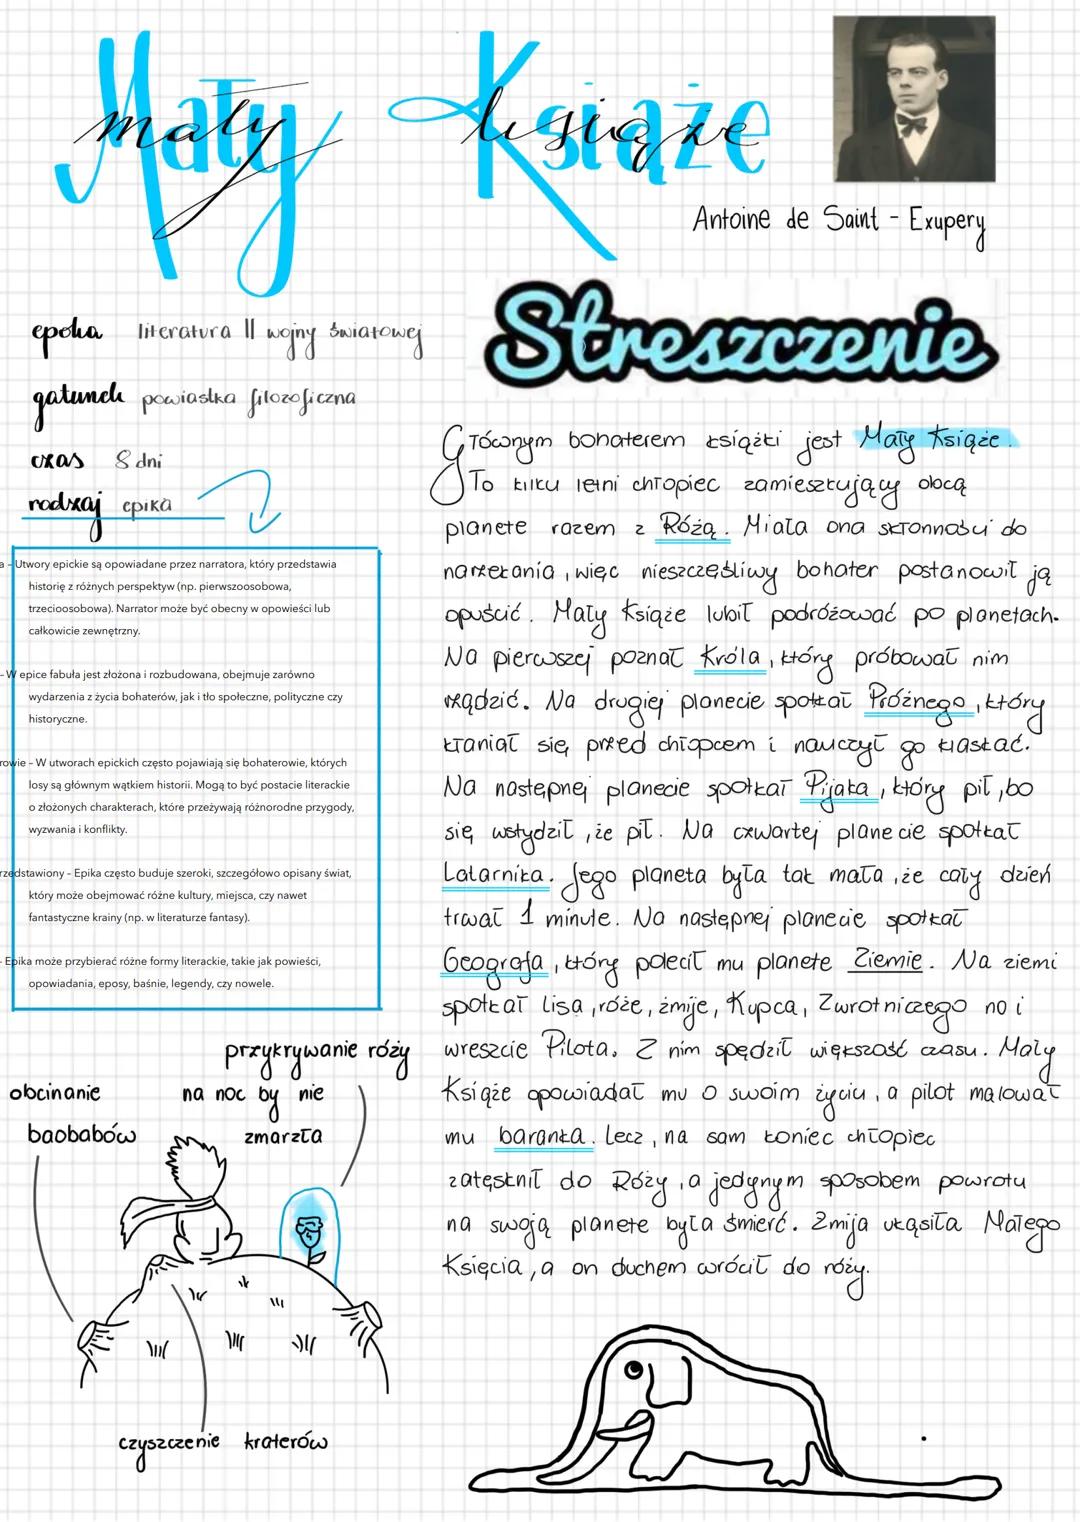 Mały Książe
mały książe
Antoine de Saint - Exupery
epoka literatura II wojny światowej
gatunek powiastka filozoficzna
czas 8 dni
rodzaj epika
a – Utwory epickie są opowiadane przez narratora, który przedstawia
historię z różnych perspektyw (np. pierwszoosobowa,
trzecioosobowa). Narrator może być obecny w opowieści lub
całkowicie zewnętrzny.
– W epice fabuła jest złożona i rozbudowana, obejmuje zarówno
wydarzenia z życia bohaterów, jak i tło społeczne, polityczne czy
historyczne.
rowie – W utworach epickich często pojawiają się bohaterowie, których
losy są głównym wątkiem historii. Mogą to być postacie literackie
o złożonych charakterach, które przeżywają różnorodne przygody,
wyzwania i konflikty.
rzedstawiony – Epika często buduje szeroki, szczegółowo opisany świat,
który może obejmować różne kultury, miejsca, czy nawet
fantastyczne krainy (np. w literaturze fantasy).
- Epika może przybierać różne formy literackie, takie jak powieści,
opowiadania, eposy, baśnie, legendy, czy nowele.
przykrywanie róży
na noc by nie
zmarzła
obcinanie
baobabów
czyszczenie kraterów
Streszczenie
Głównym bohaterem książki jest Mały Książe.
To kilku letni chłopiec zamieszkujący obcą
planete razem z Różą. Miała ona skłonności do
narzekania, więc nieszczęśliwy bohater postanowił ją
opuścić. Mały Książe lubił podróżować po planetach.
Na pierwszej poznał Króla, który próbował nim
rządzić. Na drugiej planecie spotkał Próżnego, który
kłaniał się przed chłopcem i nauczył go klaskać.
Na następnej planecie spotkał Pijaka, który pił, bo
się wstydził, że pił. Na czwartej planecie spotkał
Latarnika. Jego planeta była tak mała, że cały dzień
trwał 1 minute. Na następnej planecie spotkał
Geografa, który polecił mu planete Ziemie. Na ziemi
spotkał lisa, róże, żmije, Kupca, Zwrotniczego no i
wreszcie Pilota. Z nim spędził większość czasu. Mały
Książe opowiadał mu o swoim życiu, a pilot malował
mu baranka. Lecz, na sam koniec chłopiec
zatęsknił do Róży, a jedynym sposobem powrotu
na swoją planete była śmierć. Żmija ukąsiła Małego
Księcia, a on duchem wrócił do róży.